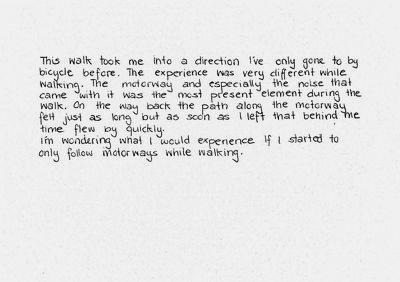 This walk took me into a direction I've only gone to by
bicycle before. The experience was very different while
walking. The motorway and especially the noise that
came with it was the most present element during the
walk. On the way back the path along the motorway
felt just as long but as soon as I left that behind me
time flew by quickly.
I'm wondering what I would experience if I started to
only follow motorways while walking.